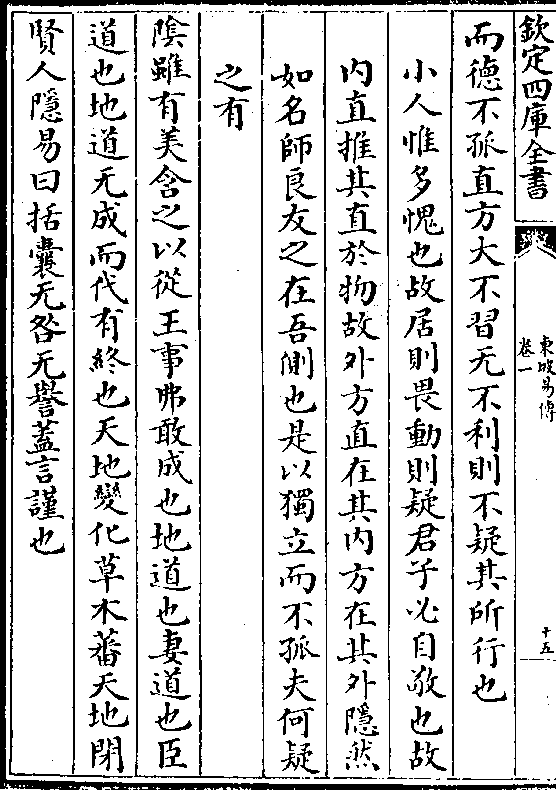 欽定四庫全書
東坡易傳
卷一
十五
而德不孤直方大不習无不利則不疑其所行也
小人惟多愧也故居則畏動則疑君子必自敬也故
内直推其直於物故外方直在其内方在其外隱然
如名師良友之在吾側也是以獨立而不孤夫何疑
之有
隂雖有美含之以從王事弗敢成也地道也妻道也臣
道也地道无成而代有終也天地變化草木蕃天地閉
賢人隱易曰括囊无咎无譽蓋言謹也